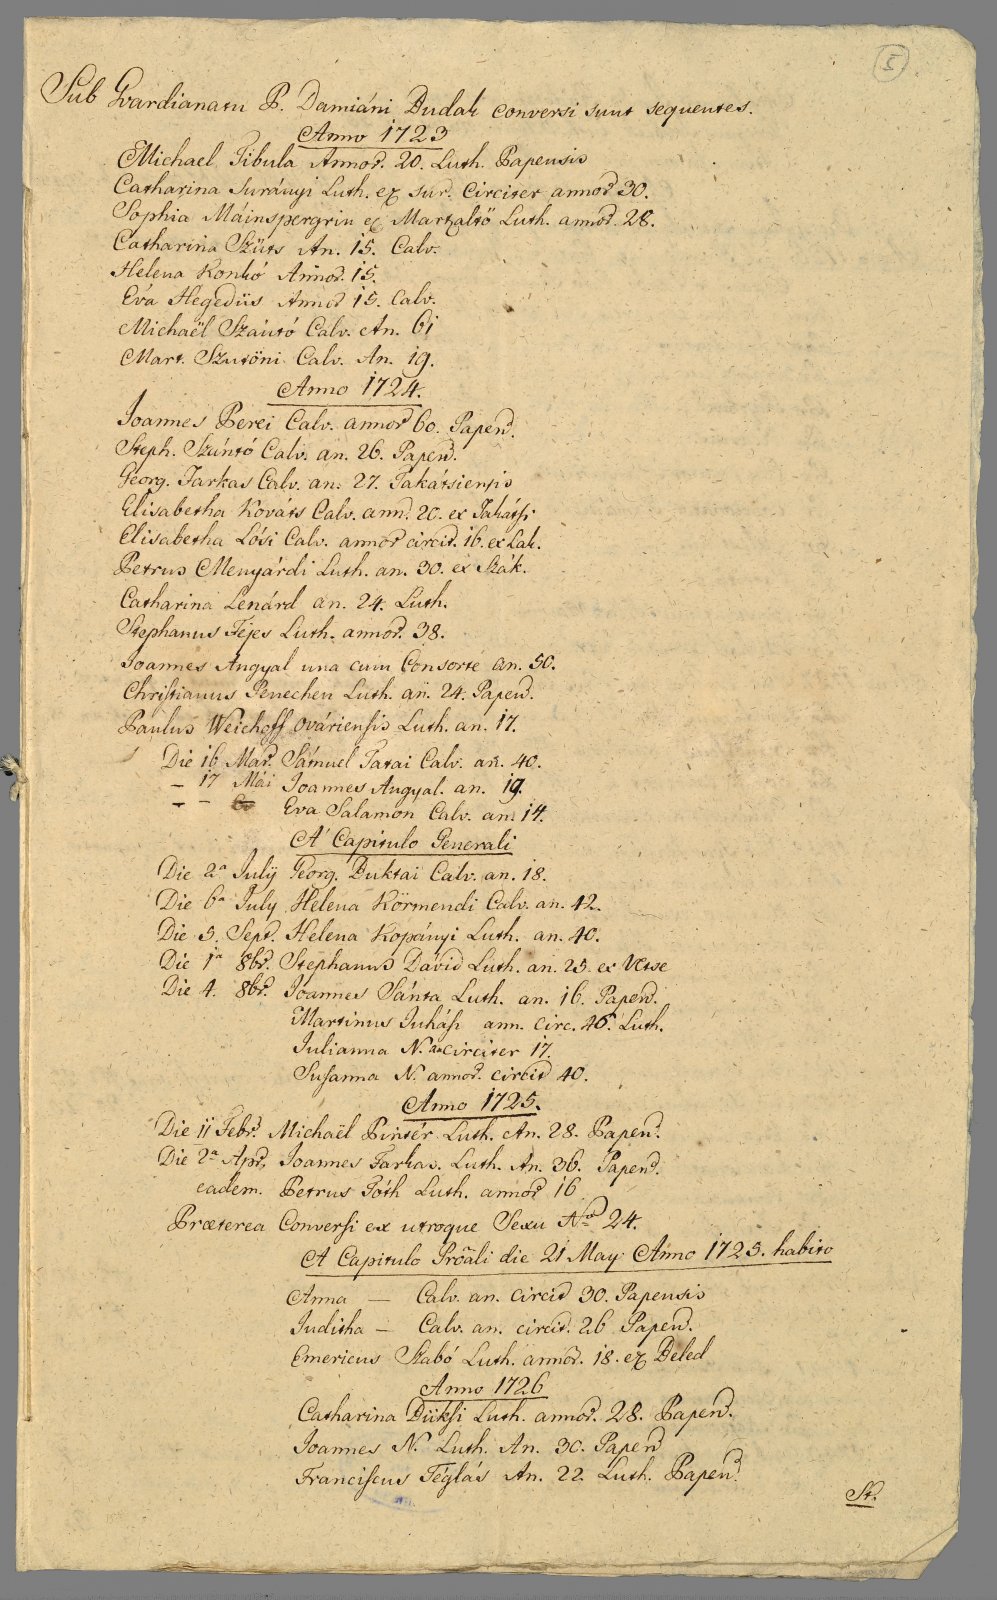 5
Sub Gvardianatu P. Damiáni Dudak conversi sunt sequentes.
Anno 1723
Michael Tibula Annor. 20. Luth. Papensis
Catharina Surányi Luth. ex Sur. circiter annor 30.
Sophia Máinspergrin ex Martzaltö Luth. annor. 28.
Catharina Szüts An. 15. Calv.
Helena Konkó Annor. 15.
Eva Hegedüs Annor 15. Calv.
Michaël Szántó Calv. An. 61
Mart. Szutöni Calv. An. 19.
Anno 1724.
Joannes Perei Calv. annor 60. Papens.
Steph. Szántó Calv. an. 26. Papens.
Georg. Farkas Calv. an. 27. Takátsiensis
Elisabetha Kováts Calv. ann. 20. ex Takátsi
Elisabetha Lósi Calv. annor circit. 16. ex Lak.
Petrus Menyárdi Luth. an. 30. ex Szák.
Catharina Lenárd an. 24. Luth.
Stephanus Fejes Luth. annor. 38.
Joannes Angyal una cum Consorte an. 50.
Christianus Penechen Luth. an. 24. Papens.
Paulus Weichoff Ováriensis Luth. an. 17.
Die 16 Mar. Sámuel Patai Calv. an. 40.
– 17 Mái Joannes Angyal. an. 19.
– – Eva Salamon Calv. an. 14.
A Capitulo Generali
Die 2a Julÿ Georg. Buktai Calv. an. 18.
Die 6a July Helena Körmendi Calv. an. 42.
Die 5. Sept. Helena Kopányi Luth. an. 40.
Die 1a 8br. Stephanus Dávid Luth. an. 25. ex Vtse
Die 4. 8br. Joannes Sánta Luth. an. 16. Papens.
Martinus Juhász ann. circ. 46. Luth.
Julianna N. an circiter 17.
Susanna N. annor. circit 40.
Anno 1725.
Die 11 Febr. Michaël Pintér Luth. An. 28. Papen.
Die 2a Apr. Joannes Farkas. Luth. An. 36. Papens.
eadem. Petrus Tóth Luth. annor 16
Præterea Conversi ex utroque Sexu Nro 24.
A Capitulo Prõali die 21 May Anno 1725. habito
Anna — Calv. an. circit 30. Papensis
Juditha — Calv. an. circit. 26 Papens.
Emericus Szabó Luth. annor. 18. ex Beled
Anno 1726
Catharina Düksi Luth. annor. 28. Papens.
Joannes N. Luth. An. 30. Papens
Franciscus Téglás An. 22 Luth. Papens.
St.